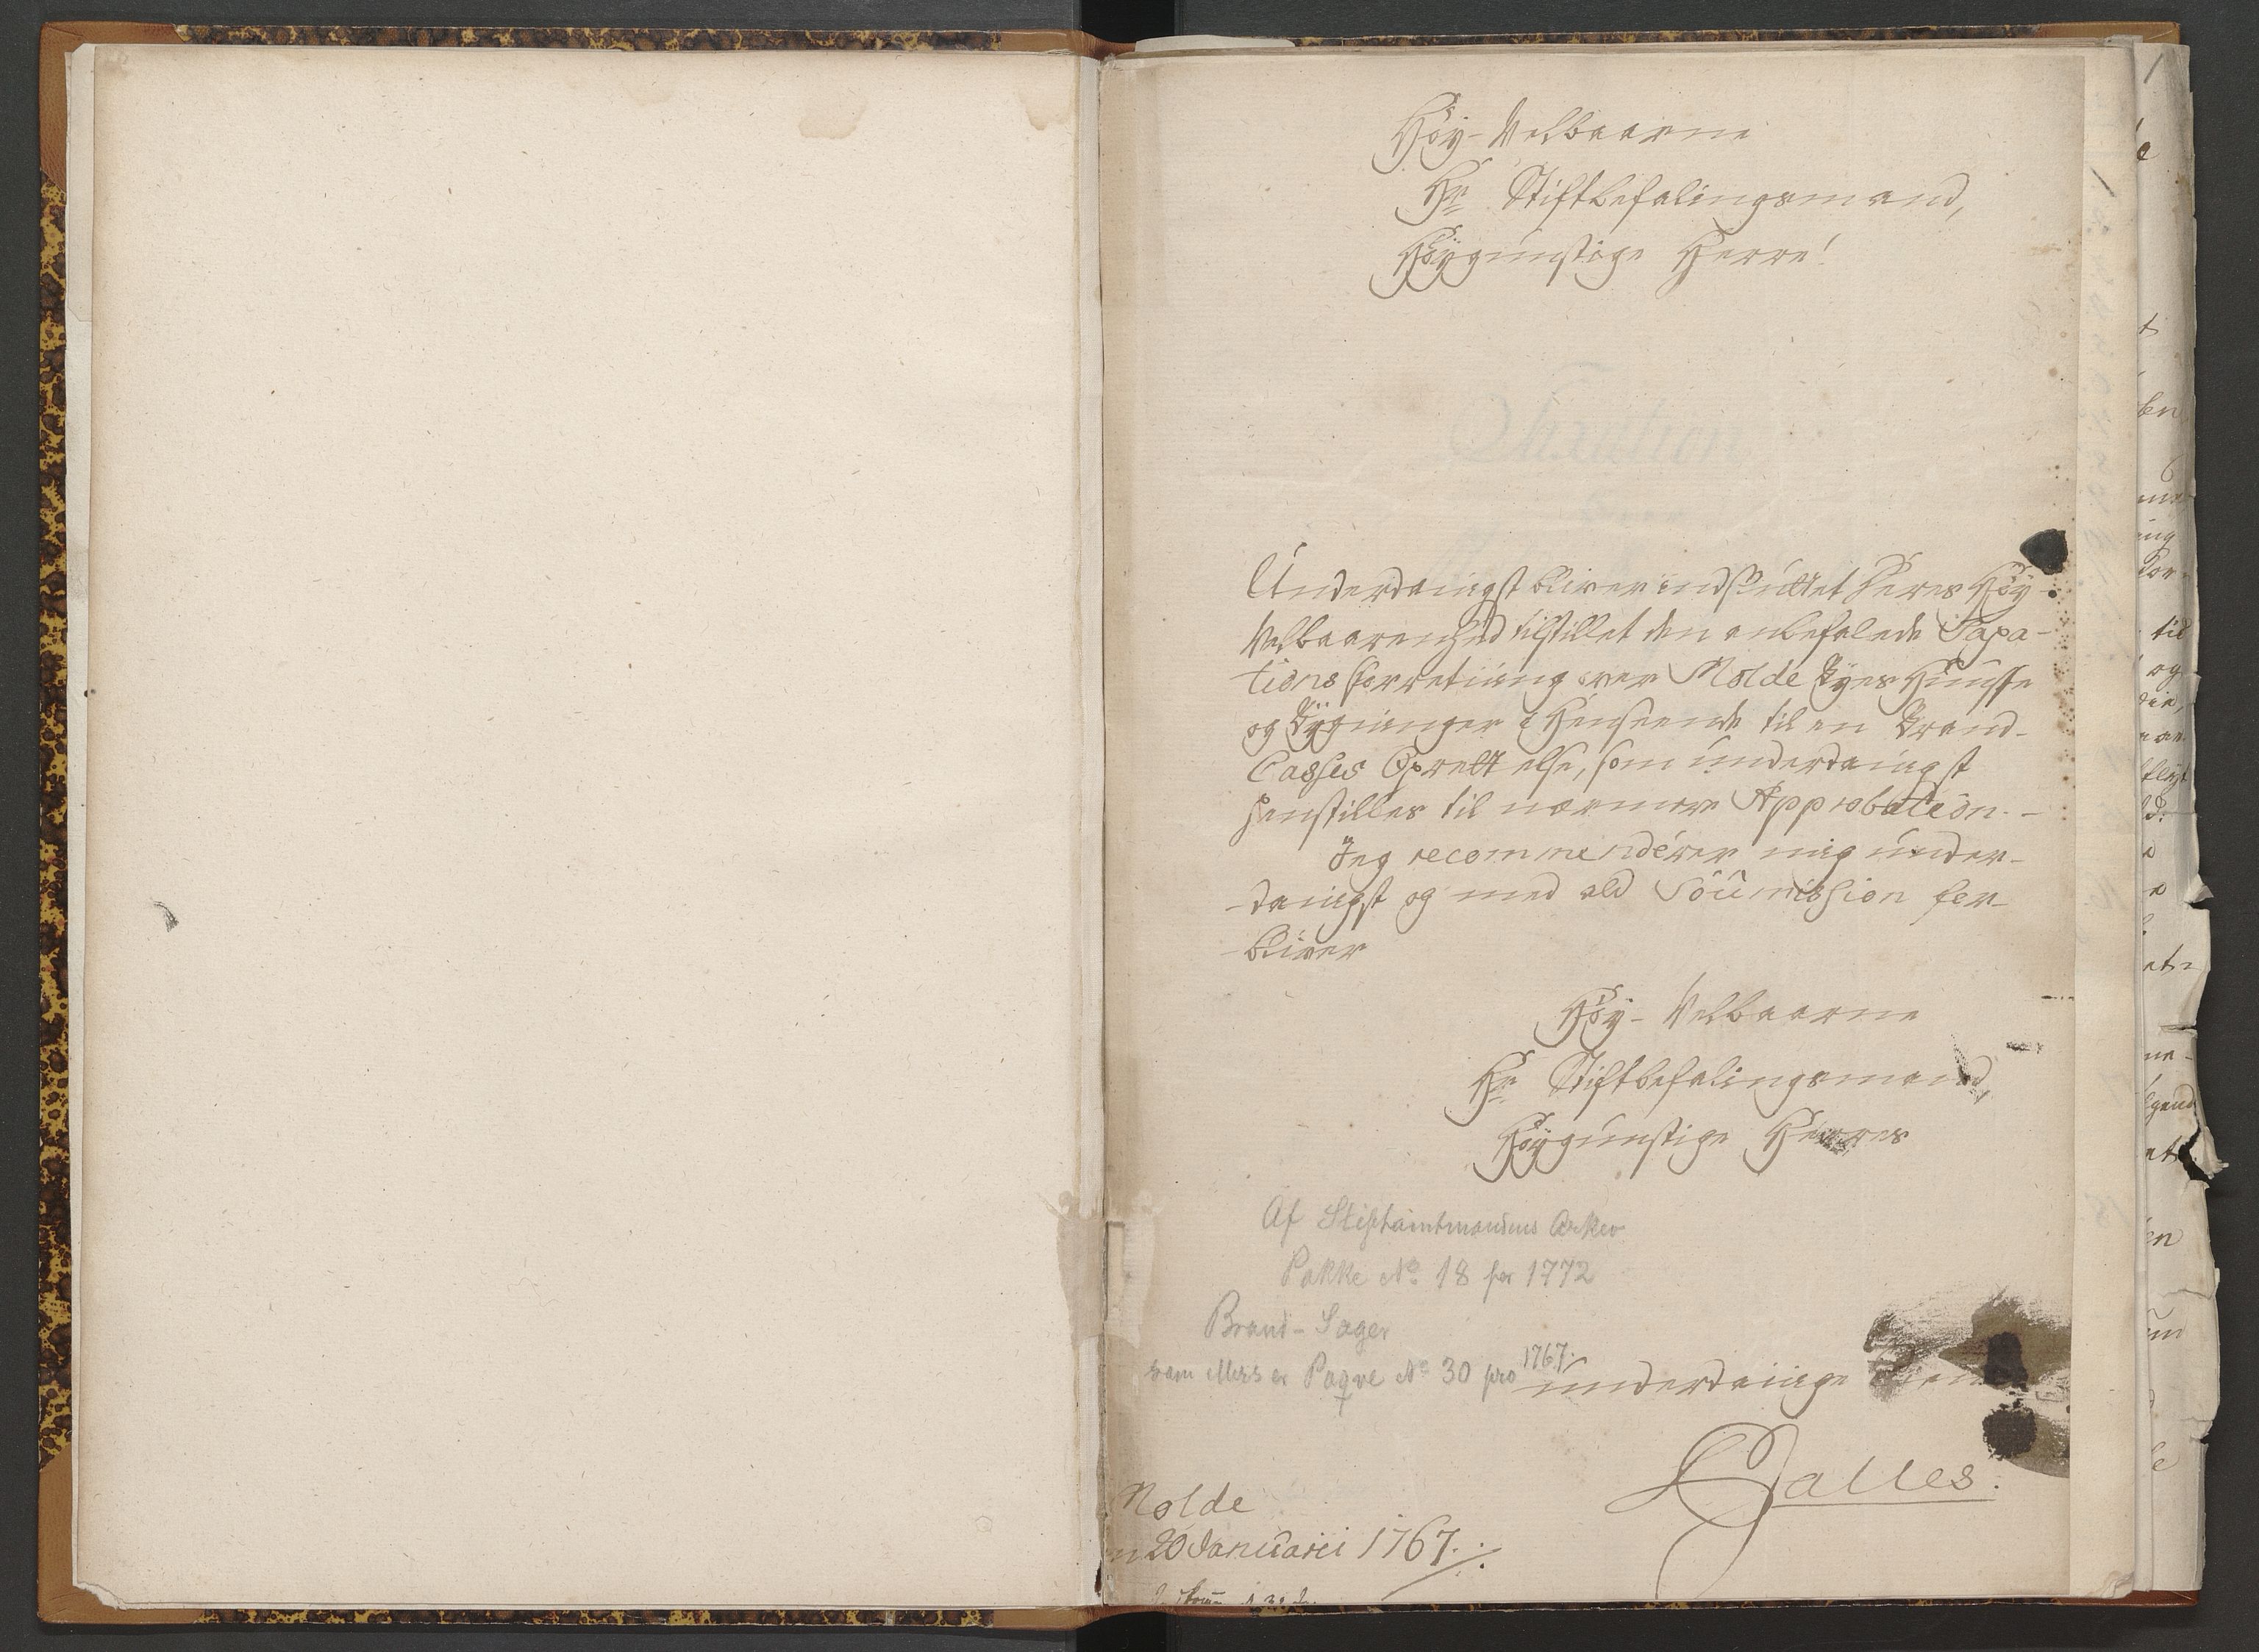 Høy-Velbaarne
Hr Stiftbefalingsmand,
Høygunstige Herre!
Taxation
Underdanigst bliver indsluttet Deres Høy-
Velbaarenhed tilstillet den anbefalede Taxa-
tions forretning over Molde Byes Huusse
og Bygninger i Henseende til en Brand-
Casses Oprettelse, som underdanigst
henstilles til nærmere Approbation. -
Jeg recommenderer mig under-
-danigst og med ald Soûmission for-
-bliver
Høy-Velbaarne
Hr Stiftbefalingsmand,
Høygunstige Herres
Af Stiftamtmandens Arkiv
Pakke No 18 for 1772
Brand-Sager
som ellers er Paqve No 30 pro 1767.
underdanige
Dalles.
Molde
n 20 Januarii 1767.